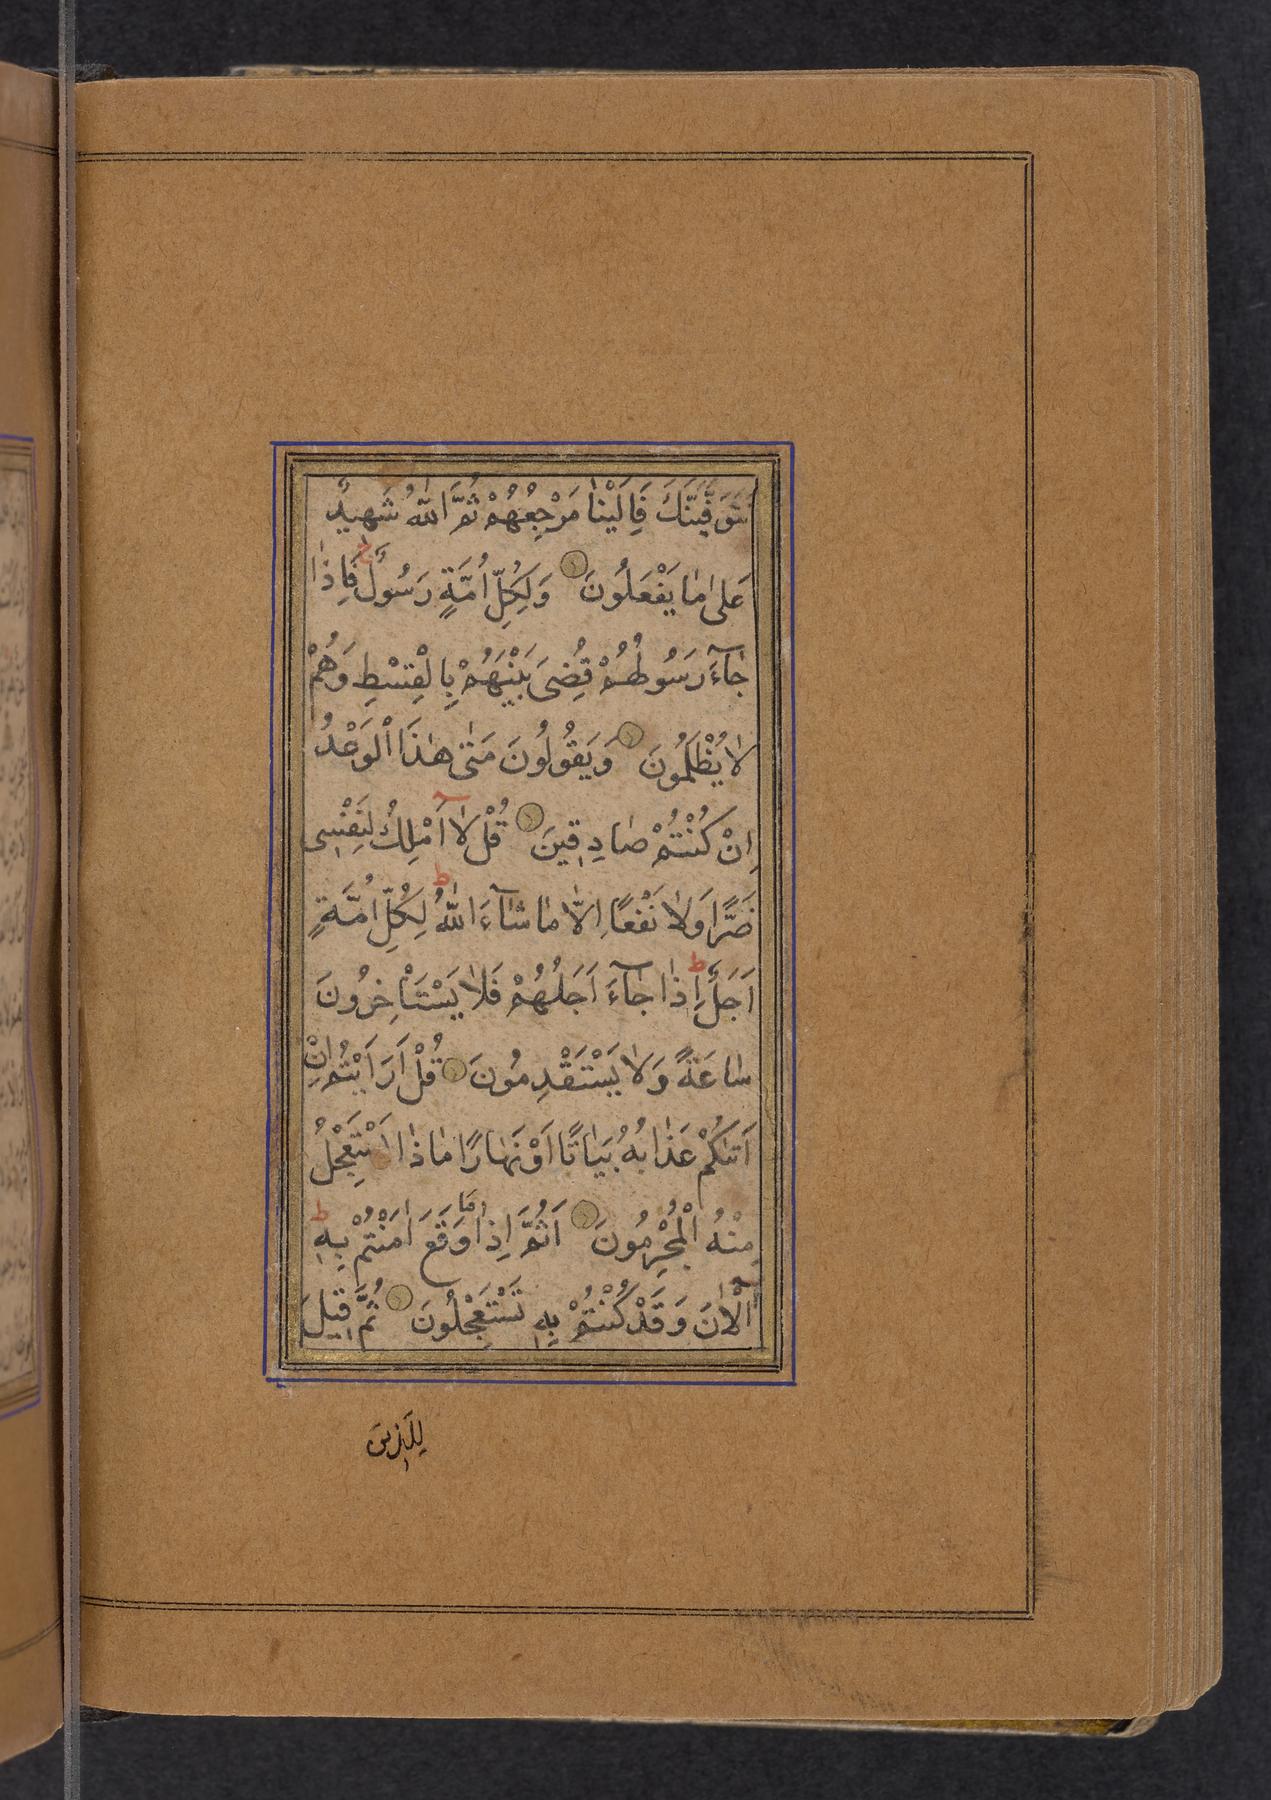 نَتَوَفَّيَنَّكَ فَاِلَيْنٰا مَرْجِعُهُمْ ثُمَّ اللّٰهُ شَهيدٌ
عَلىٰ مٰا يَفْعَلُونَ وَلِكُلِّ اُمَّةٍ رَسُولٌ ج فَاِذٰا
جٰآءَ رَسُولُهُمْ قُضِىَ بَيْنَهُمْ بِالْقِسْطِ وَهُمْ
لٰا يُظْلَمُونَ وَيَقُولُونَ مَتىٰ هٰذَا الْوَعْدُ
اِنْ كُنْتُمْ صٰادِقينَ قُلْ لٰٓا اَمْلِكُ لِنَفْسى
ضَرًّا وَلٰا نَفْعًا اِلّٰا مٰا شٰآءَ اللّٰهُ ط لِكُلِّ اُمَّةٍ
اَجَلٌ ط اِذٰا جٰآءَ اَجَلُهُمْ فَلٰا يَسْتَاْخِرُونَ
سٰاعَةً وَلٰا يَسْتَقْدِمُونَ قُلْ اَرَاَيْتُمْ اِنْ
اَتٰىكُمْ عَذٰابُهُ بَيٰاتًا اَوْ نَهٰارًا مٰاذٰا يَسْتَعْجِلُ
مِنْهُ الْمُجْرِمُونَ اَثُمَّ اِذٰا مٰا وَقَعَ اٰمَنْتُمْ بِهِ ط
آلْاٰنَ وَقَدْ كُنْتُمْ بِهِ تَسْتَعْجِلُونَ ثُمَّ قيلَ
لِلَّذينَ